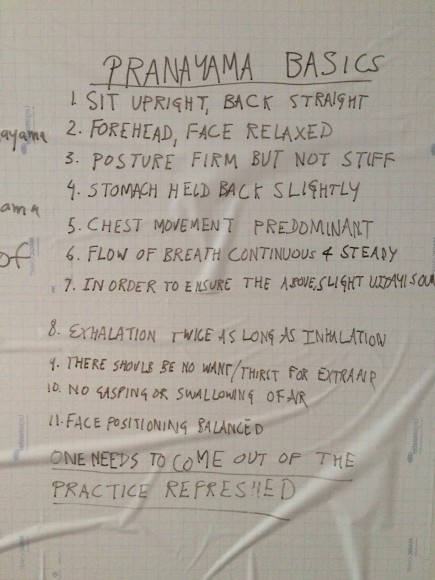 PRANAYAMA BASICS
1. SIT UPRIGHT, BACK STRAIGHT
ayama
2. FOREHEAD, FACE RELAXED
3. POSTURE FIRM BUT NOT STIFF
4. STOMACH HELD BACK SLIGHTLY
ama
5. CHEST MOVEMENT PREDOMINANT
of
6. FLOW OF BREATH CONTINUOUS & STEADY
7. IN ORDER TO ENSURE THE ABOVE, SLIGHT UJJAYI SOUN
8. EXHALATION TWICE AS LONG AS INHALATION
9. THERE SHOULD BE NO WANT/THIRST FOR EXTRA AIR
10. NO GASPING OR SWALLOWING OF AIR
11. FACE POSITIONING BALANCED
ONE NEEDS TO COME OUT OF THE
PRACTICE REFRESHED